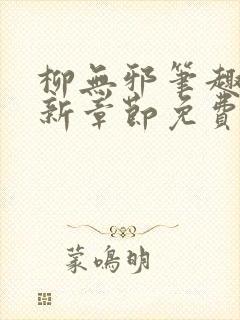 柳無邪筆趣
新章節免費
蒙鳴明